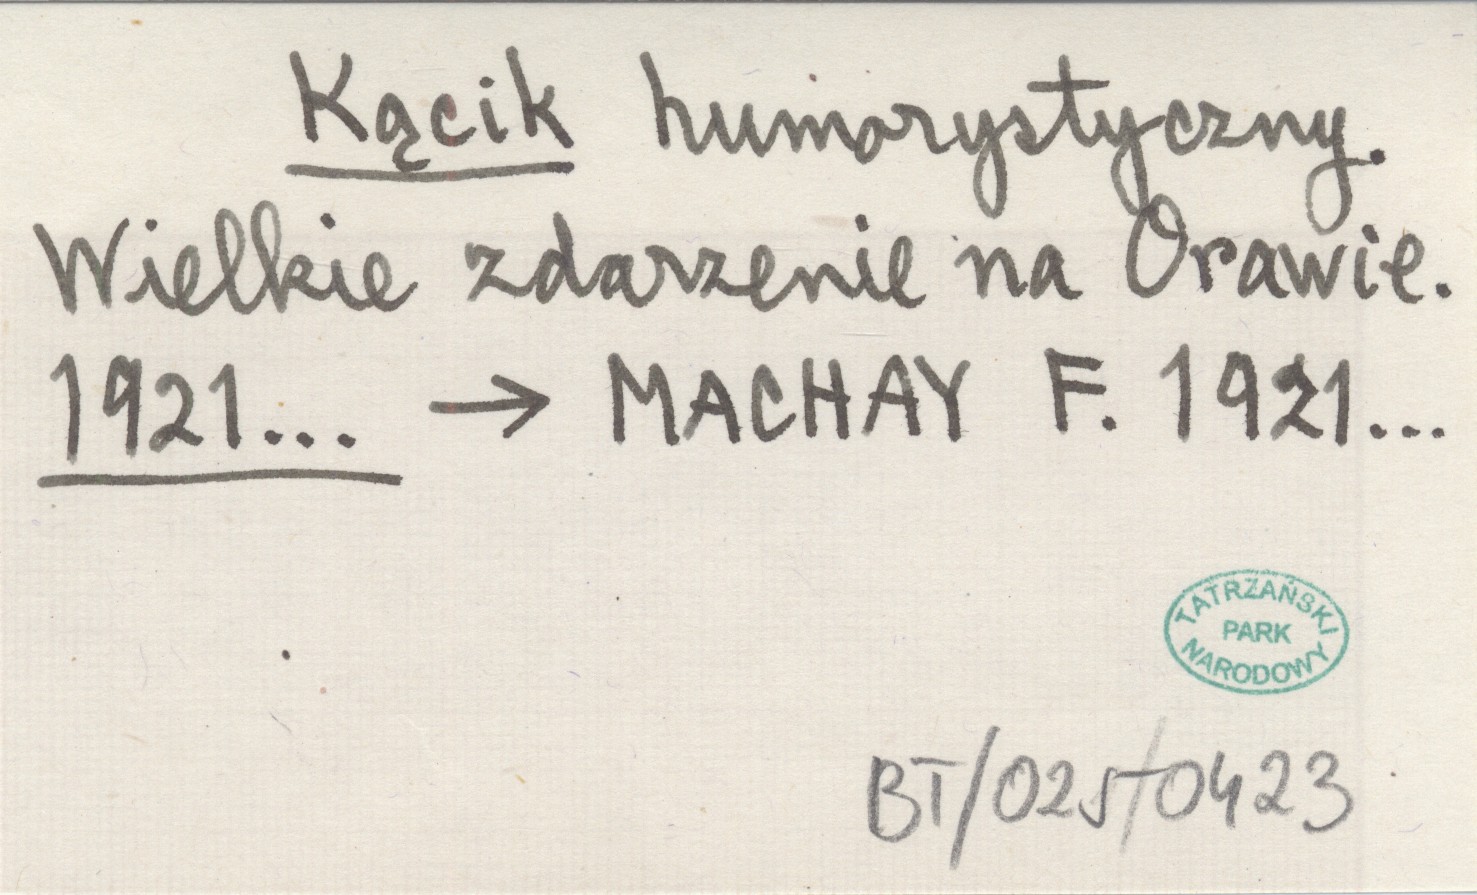 Kącik humorystyczny.
Wielkie zdarzenie na Orawie.
1921... → MACHAY F. 1921...
TATRZAŃSKI
PARK
NARODOWY
BT/025/0423